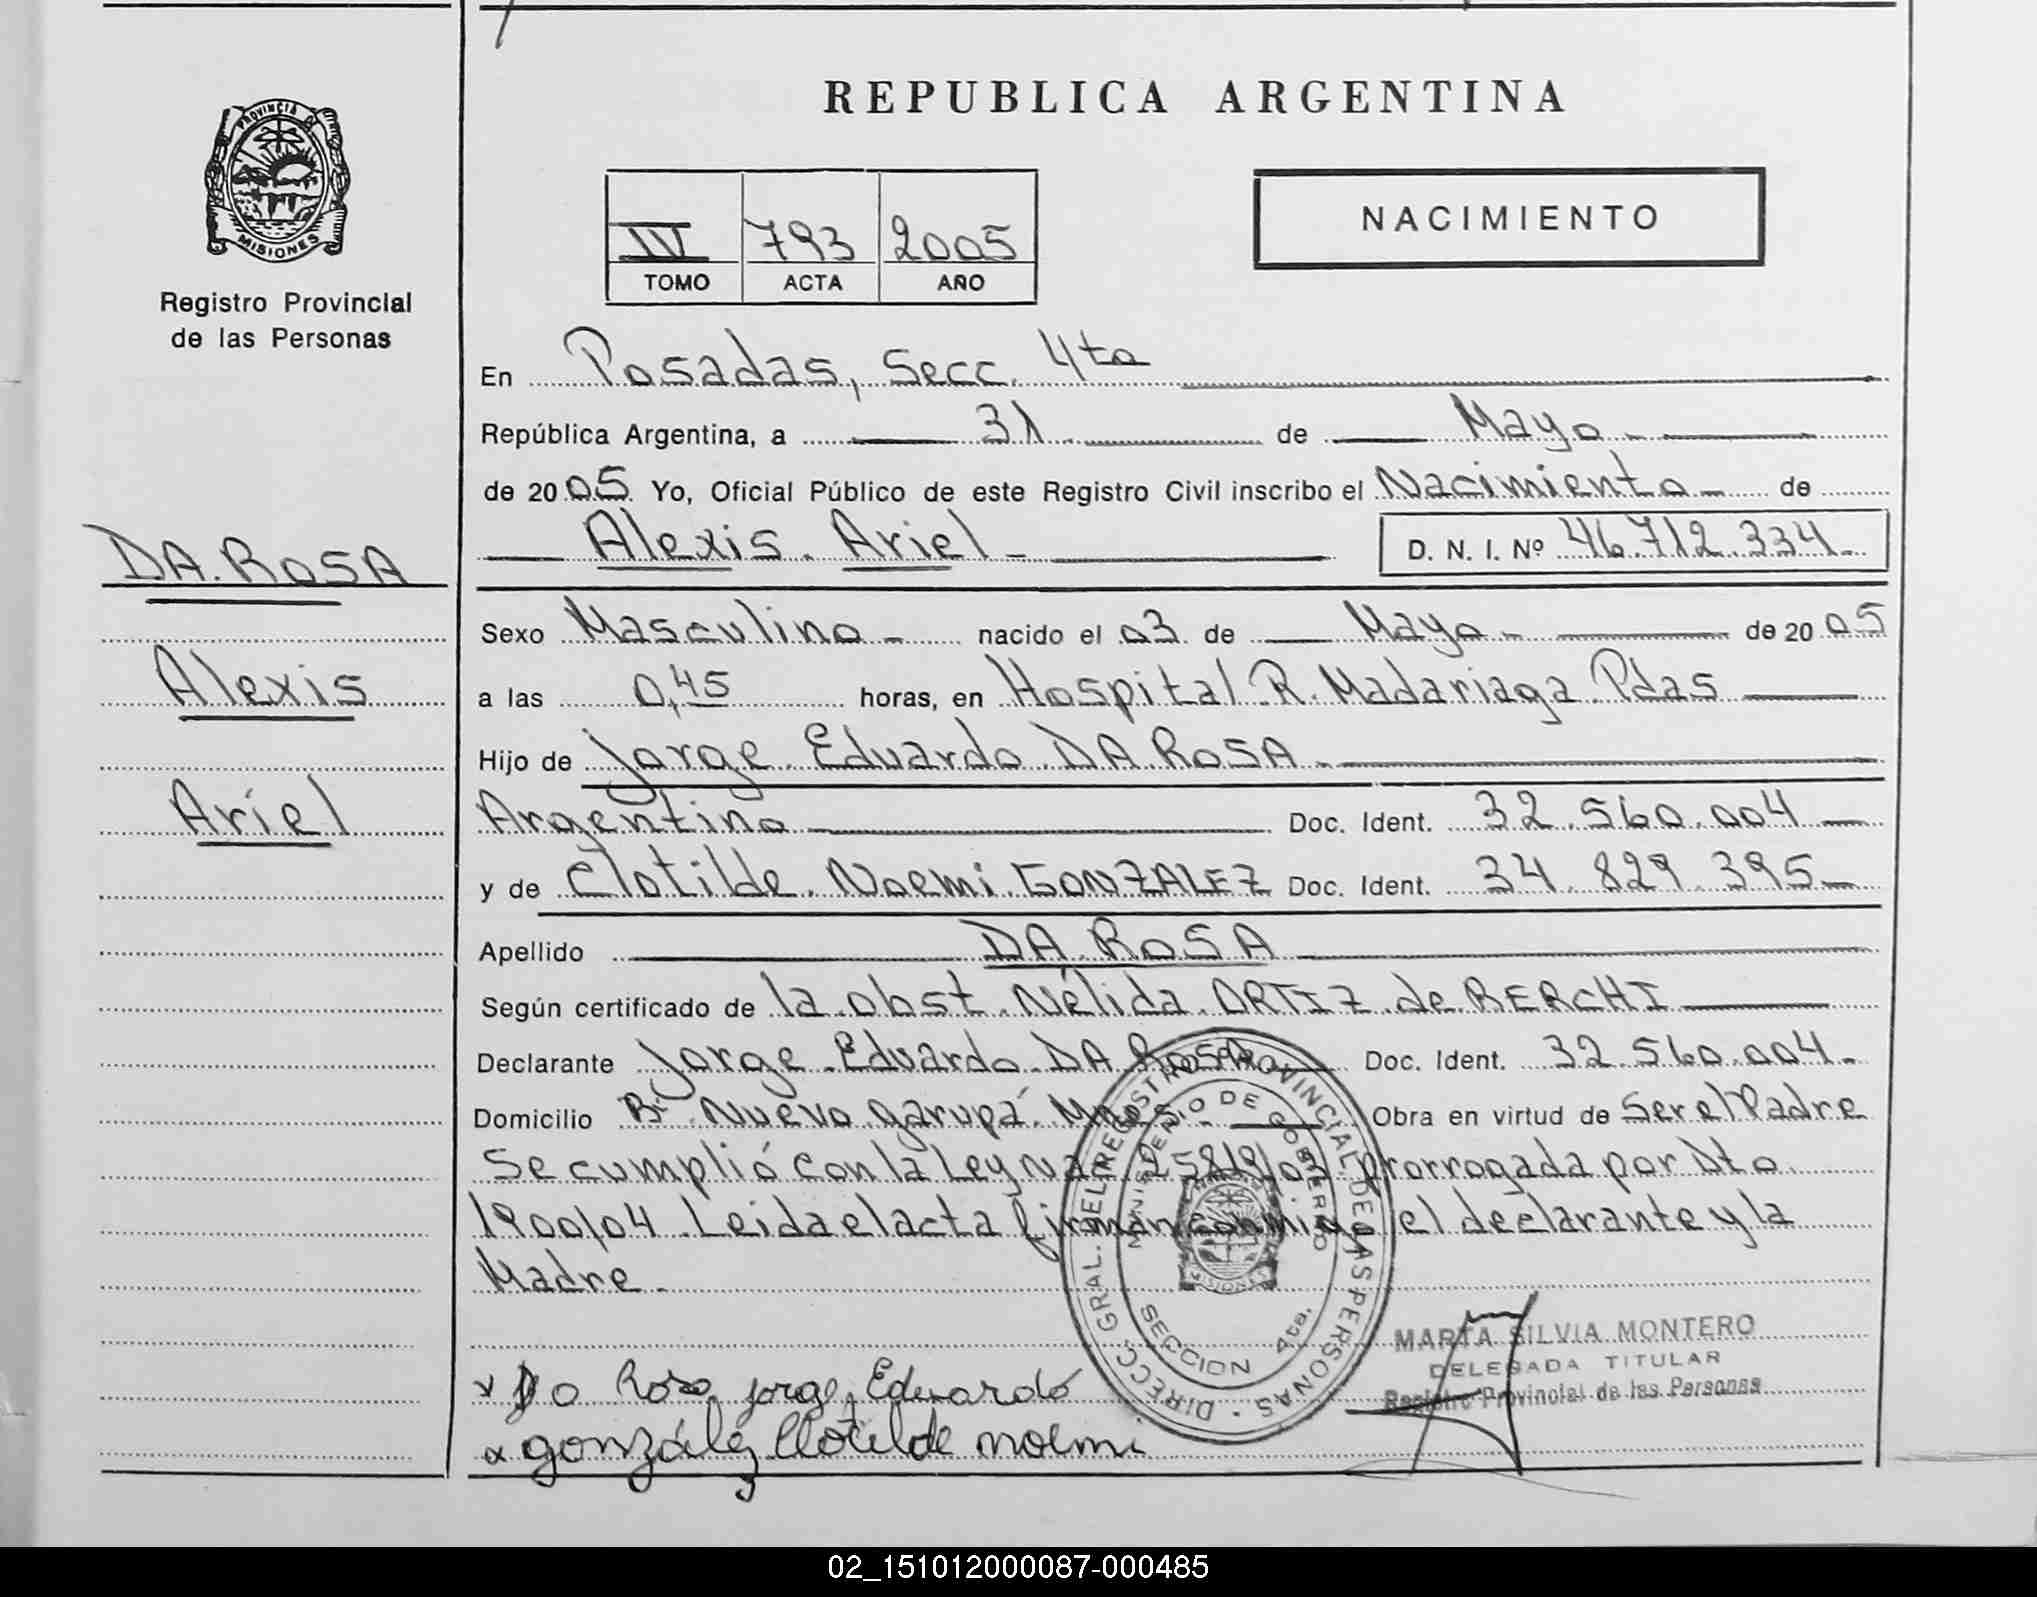 REPUBLICA ARGENTINA
PROVINCIA DE
MISIONES
Registro Provincial
de las Personas
IV 793 2005
TOMO ACTA AÑO
NACIMIENTO
DA ROSA
Alexis
Ariel
En Posadas, Secc. 4ta
República Argentina, a 31 de Mayo
de 2005 Yo, Oficial Público de este Registro Civil inscribo el Nacimiento de
Alexis Ariel D. N. I. Nº 46.712.334
Sexo Masculino nacido el 03 de Mayo de 2005
a las 0,45 horas, en Hospital R. Madariaga Pdas
Hijo de Jorge Eduardo DA ROSA
Argentino Doc. Ident. 32.560.004
y de Clotilde Noemi GONZALEZ Doc. Ident. 34.829.395
Apellido DA ROSA
Según certificado de la obst. Nélida ORTIZ de BERCHI
Declarante Jorge Eduardo DA ROSA Doc. Ident. 32.560.004
Domicilio Bº Nuevo Garupá. Mnes. Obra en virtud de Ser el Padre
Se cumplió con la Ley Nac. 25819/03 prorrogada por Dto
1900/04. Leida el acta firman conmigo el declarante y la
Madre.
DIRECC. GRAL. DEL REGISTRO PROVINCIAL DE LAS PERSONAS
MINISTERIO DE GOBIERNO
MISIONES
SECCION 4ta.
MARTA SILVIA MONTERO
DELEGADA TITULAR
Registro Provincial de las Personas
x Da Rosa Jorge Eduardo
x González Clotilde Noemi
02_151012000087-000485